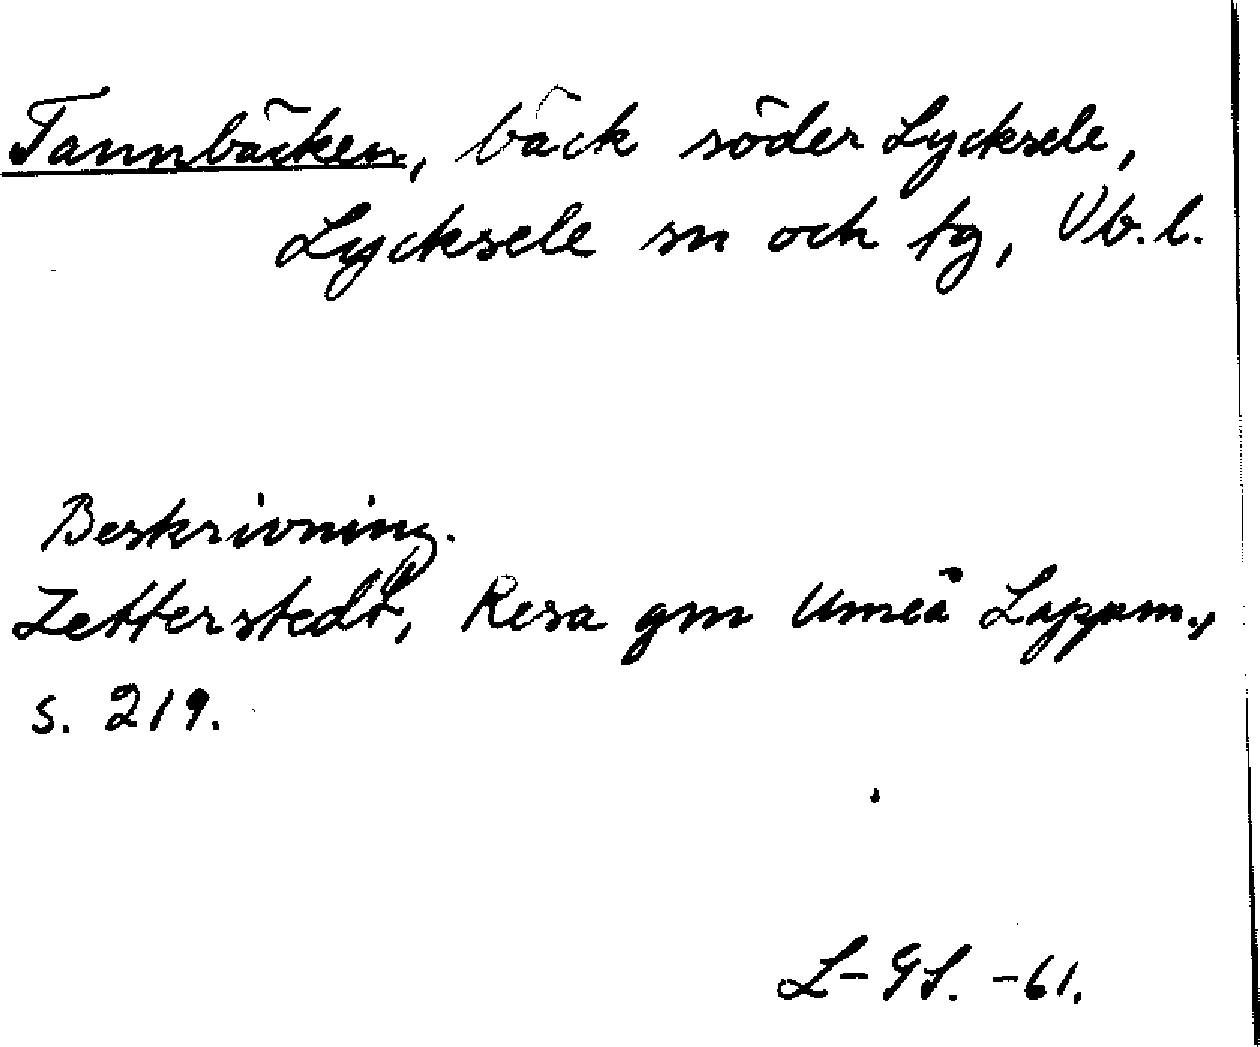 Tannbäcken, bäck söder Lycksele,
Lycksele sn och tg, Vb. l.
Beskrivning.
Zetterstedt, Resa gm Umeå Lappm.,
s. 219.
L-GS. -61.